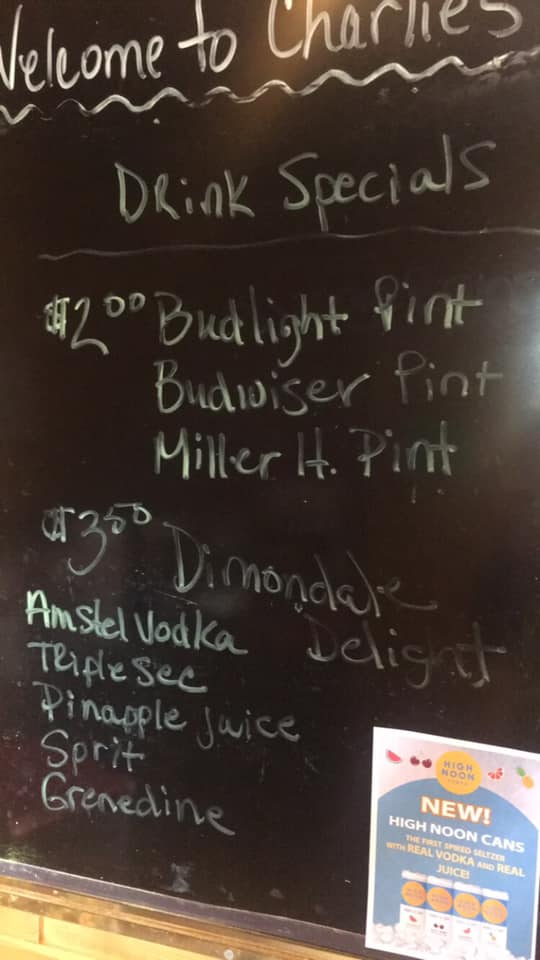 Welcome to Charlies
Drink Specials
$2.00 Budlight Pint
Budwiser Pint
Miller lt. Pint
$3.50 Dimondale
Delight
Amstel Vodka
Triple Sec
Pinapple juice
Sprit
Grenedine
HIGH
NOON
NEW!
HIGH NOON CANS
THE FIRST SPIKED SELTZER
WITH REAL VODKA AND REAL
JUICE!